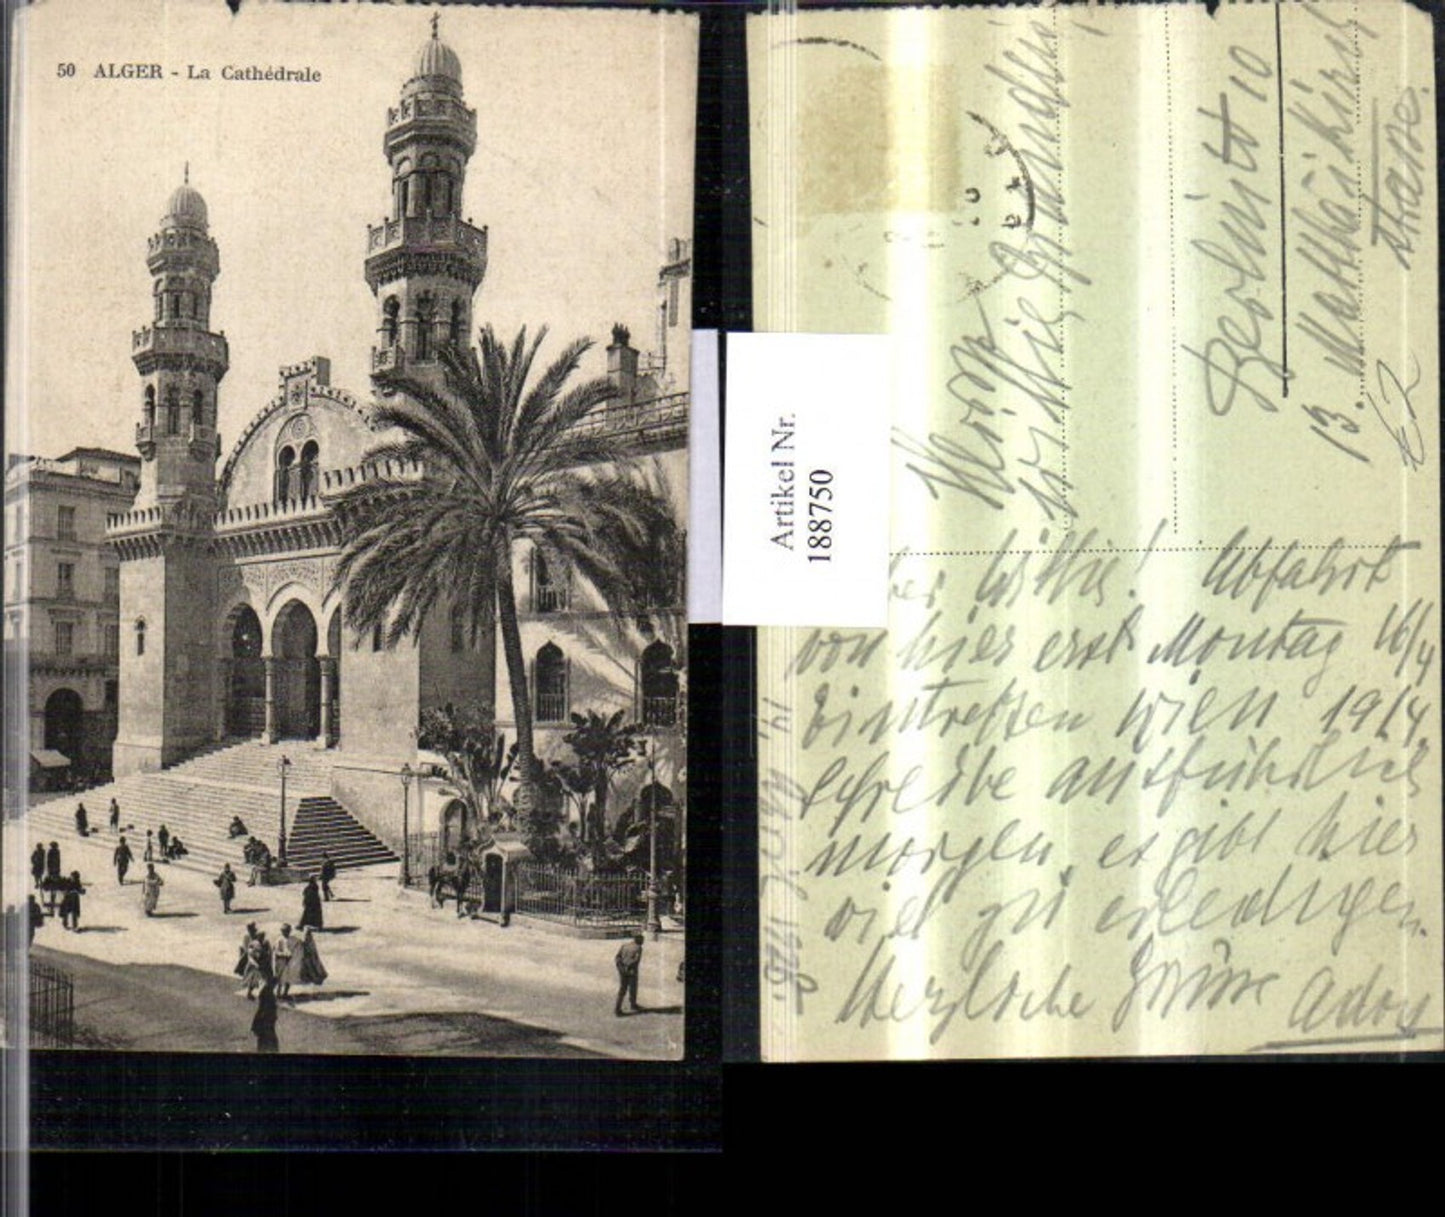 50 ALGER - La Cathédrale
Artikel Nr.
188750
Berlin
13. Matthäikirch
strasse.
€2
Willie! Abfahrt
von hier erst Montag 16/4
Eintreffen Wien 19/4.
schreibe ausführlich
morgen, es gibt hier
viel zu erledigen.
Herzliche Grüsse